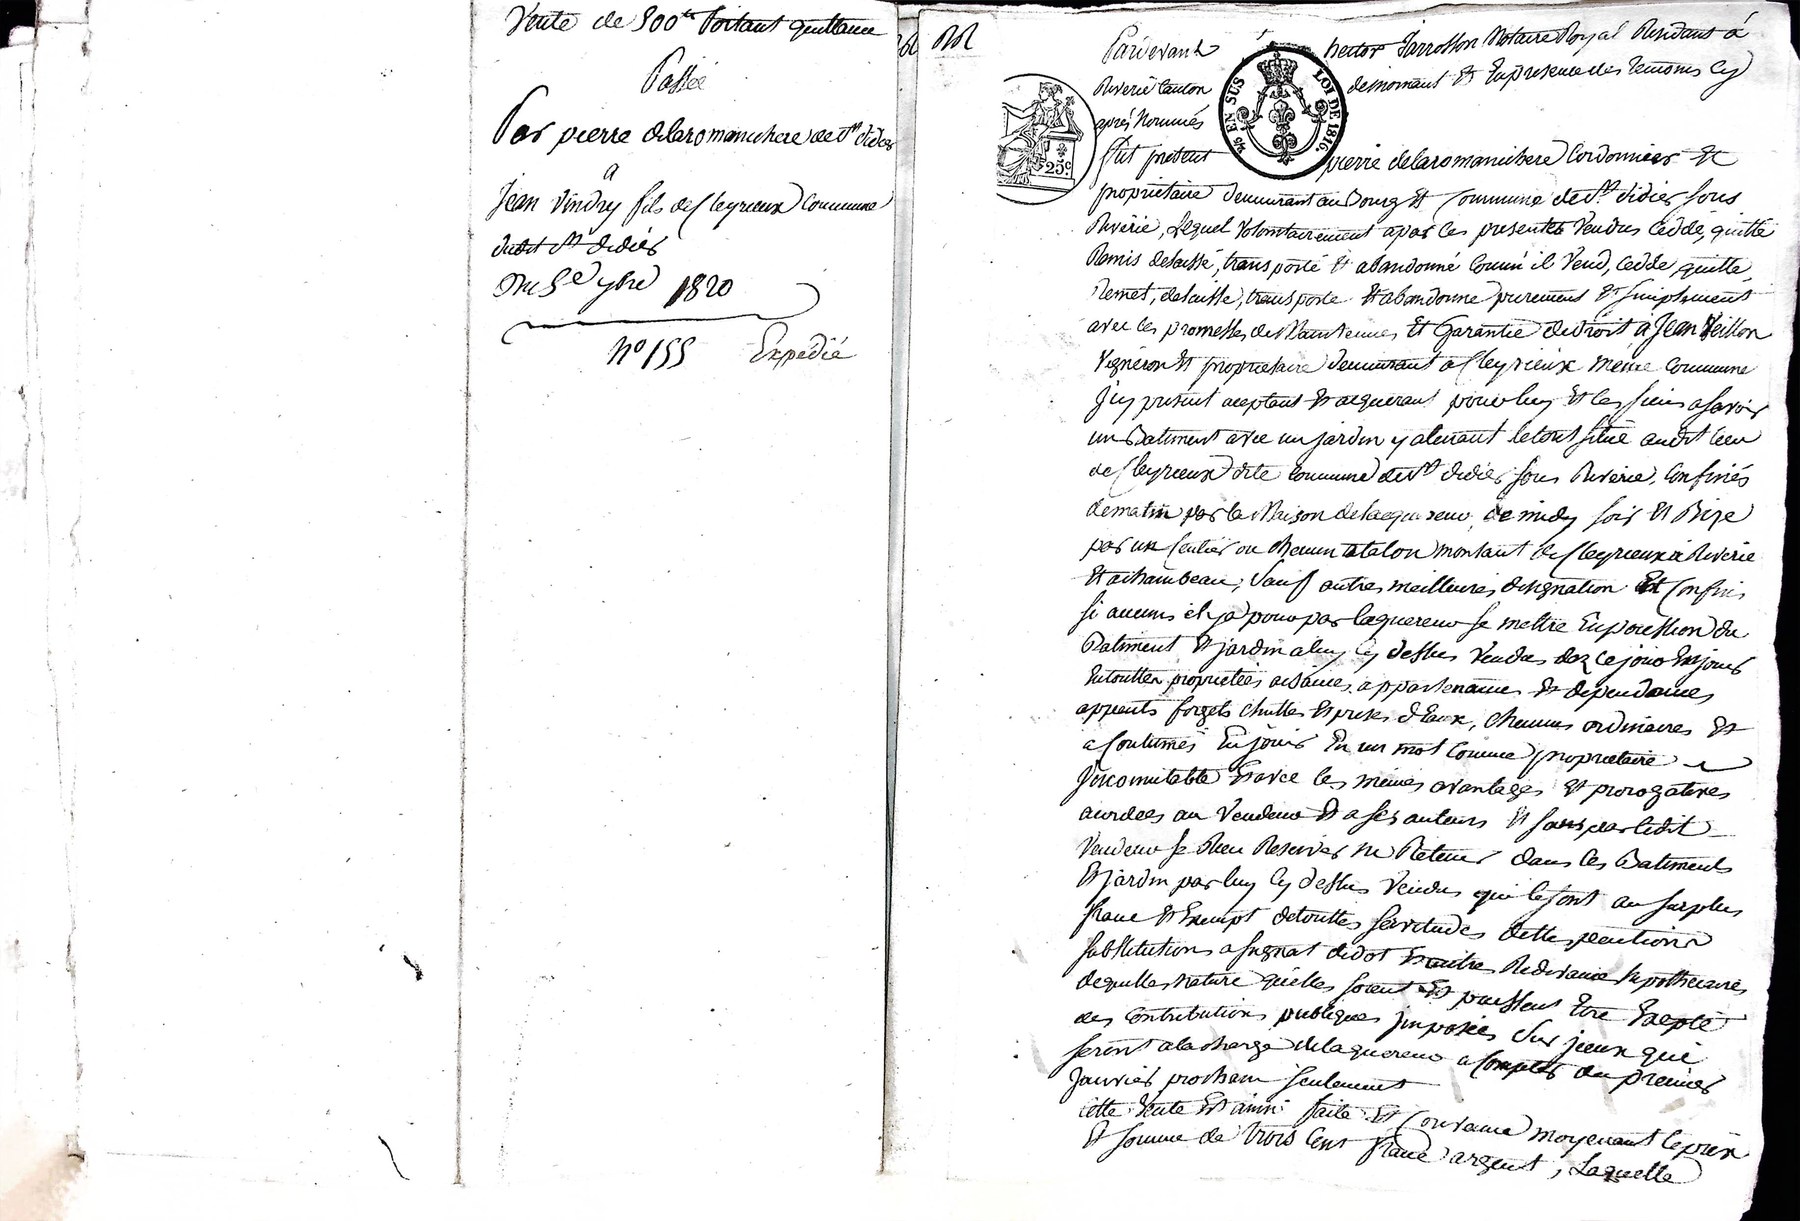 Vente de 300 lt portant quittance
Passée
Par pierre delaromanchere de St didier
à
Jean Vindry fils de Cleyrieux Commune
dudit St didier
Du 5e 7bre 1820
No 155 Expédié
Pardevant hector Jarrosson Notaire Royal Residant à
Riverie canton demornant Et En presence des temoins Cy
après Nommés
25 EN SUS LOI DE 1816.
25c
fut present pierre delaromanchere Cordonnier Et
propriétaire demeurant au Bourg Et Commune de St didier sous
Riverie, Lequel Volontairement apar ces presentes Vendus Cédé, quitté
Remis delaissé, transporté Et abandonné comm'il Vend, Cedde quitte,
Remet, delaisse, transporte Et abandonne purement Et simplement
avec les promesses de Maintenue Et Garantie de droit à Jean
Vigneron Et propriétaire demeurant a Cleyrieux même Commune
Jcy présent aceptant Et acquerant pour luy Et les siens asavoir
un Batiment avec un jardin y atenant letout situé audit lieu
de Cleyrieux dite Commune de St didier sous Riverie, Confinés
dematin par la Maison delacquereur, de midy soir Et Bize
par un sentier ou chemin atalon montant de Cleyrieux à Riverie
Et achambeau, Sauf autres meilleures designation Et Confins
si aucuns il y a pour par laquereur se mettre En possession du
Batiment Et jardin aluy Cy dessus Vendus dez cejour En jouir
En touttes proprietées aisances, appartenances Et dependances
appents forgets chuttes Et prises d'Eaux, Chemins ordinaires Et
acoutumés En jouir En un mot Comme propriétaire
Jncomutable Et avec les mêmes avantages Et prerogatives
acordées au Vendeur Et a ses auteurs Et sans par ledit
Vendeur se Rien Reserver ni Retenir dans les Batiments
Et jardin par luy Cy dessus Vendus qui le sont au surplus
franc Et Exempt detouttes servitudes dettes, pentions
substitutions asignat de dot Et autres Redevances hypothecaires
dequelles nature quelles soient Et puissent Etre Excepté
des Contributions publiques Jmposées Sur jceux qui
seront alacharge delaquereur a Compter du premier
Janvier prochain seulement
Cette Vente Est ainsi faite Et Convenue moyenant leprix
Et somme de trois Cent franc argent, Laquelle